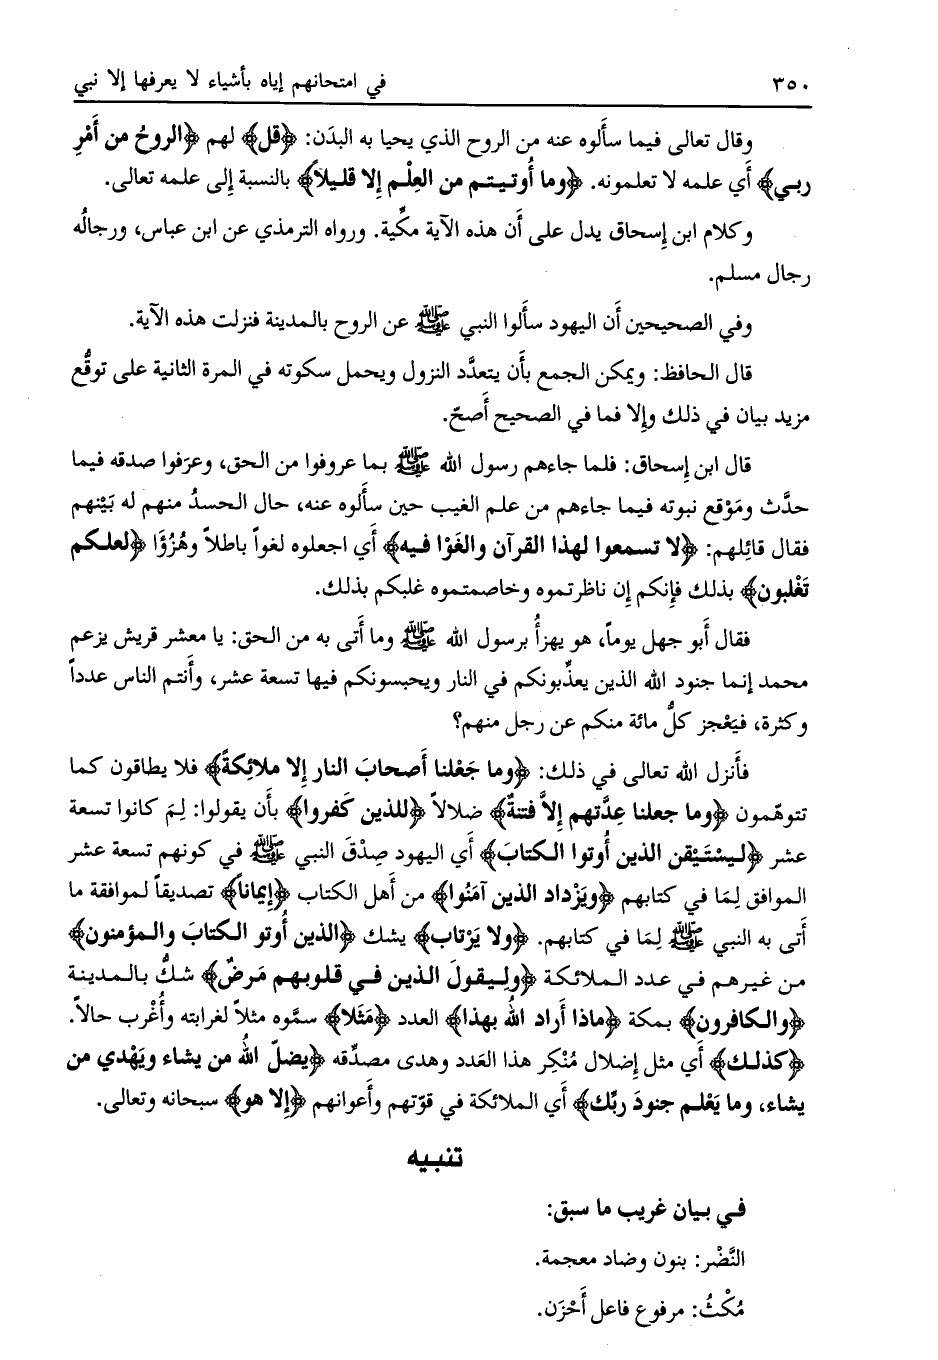 ٣٥٠ في امتحانهم إياه بأشياء لا يعرفها إلا نبي
وقال تعالى فيما سأَلوه عنه من الروح الذي يحيا به البدَن: ﴿قل﴾ لهم ﴿الروحُ من أَمْرِ
ربي﴾ أَي علمه لا تعلمونه. ﴿وما أُوتيتم من العِلْم إلا قليلاً﴾ بالنسبة إِلى علمه تعالى.
وكلام ابن إِسحاق يدل على أَن هذه الآية مكِّية. ورواه الترمذي عن ابن عباس، ورجالُه
رجال مسلم.
وفي الصحيحين أَن اليهود سأَلوا النبي ﷺ عن الروح بالمدينة فنزلت هذه الآية.
قال الحافظ: ويمكن الجمع بأَن يتعدَّد النزول ويحمل سكوته في المرة الثانية على توقُّع
مزيد بيان في ذلك وإِلا فما في الصحيح أَصحّ.
قال ابن إِسحاق: فلما جاءهم رسول الله ﷺ بما عروفوا من الحق، وعرَفوا صدقه فيما
حدَّث ومَوْقع نبوته فيما جاءهم من علم الغيب حين سأَلوه عنه، حال الحسدُ منهم له بَيْنهم
فقال قائِلهم: ﴿لا تسمعوا لهذا القرآن والغَوْا فيه﴾ أَي اجعلوه لغواً باطلاً وهُزُؤَا ﴿لعلكم
تَغْلبون﴾ بذلك فإِنكم إِن ناظرتموه وخاصمتموه غلبكم بذلك.
فقال أَبو جهل يوماً، هو يهزأُ برسول الله ﷺ وما أَتى به من الحق: يا معشر قريش يزعم
محمد إِنما جنود الله الذين يعذِّبونكم في النار ويحبسونكم فيها تسعة عشر، وأَنتم الناس عدداً
وكثرة، فيَعْجز كلُّ مائة منكم عن رجل منهم؟
فأَنزل الله تعالى في ذلك: ﴿وما جَعْلنا أَصحابَ النار إِلا ملائِكةً﴾ فلا يطاقون كما
تتوهّمون ﴿وما جعلنا عِدَّتهم إِلاَّ فتنةٌ﴾ ضلالاً ﴿للذين كَفروا﴾ بأَن يقولوا: لِمَ كانوا تسعة
عشر ﴿ليسْتَيْقن الذين أُوتوا الكتابَ﴾ أَي اليهود صِدْقَ النبي ﷺ في كونهم تسعة عشر
الموافق لِمَا في كتابهم ﴿ويَزْداد الذين آمَنُوا﴾ من أَهل الكتاب ﴿إِيماناً﴾ تصديقاً لموافقة ما
أَتى به النبي ﷺ لِمَا في كتابهم. ﴿ولا يَرْتاب﴾ يشك ﴿الذين أُوتو الكتابَ والمؤمنون﴾
من غيرهم في عدد الملائكة ﴿وليقولَ الذين في قلوبهم مَرضٌ﴾ شكُّ بالمدينة
﴿والكافرون﴾ بمكة ﴿ماذا أَراد اللهُ بهذا﴾ العدد ﴿مَثَلا﴾ سمَّوه مثلاً لغرابته وأُغْرب حالاً.
﴿كذلك﴾ أَي مثل إِضلال مُنْكِر هذا العَدد وهدى مصدِّقه ﴿يضلّ اللهُ من يشاء ويَهْدي من
يشاء، وما يَعْلم جنودَ ربِّك﴾ أَي الملائكة في قوّتهم وأَعوانهم ﴿إِلا هو﴾ سبحانه وتعالى.
تنبيه
في بيان غريب ما سبق:
النَّضْر: بنون وضاد معجمة.
مُكْثُ: مرفوع فاعل أَحْزَن.